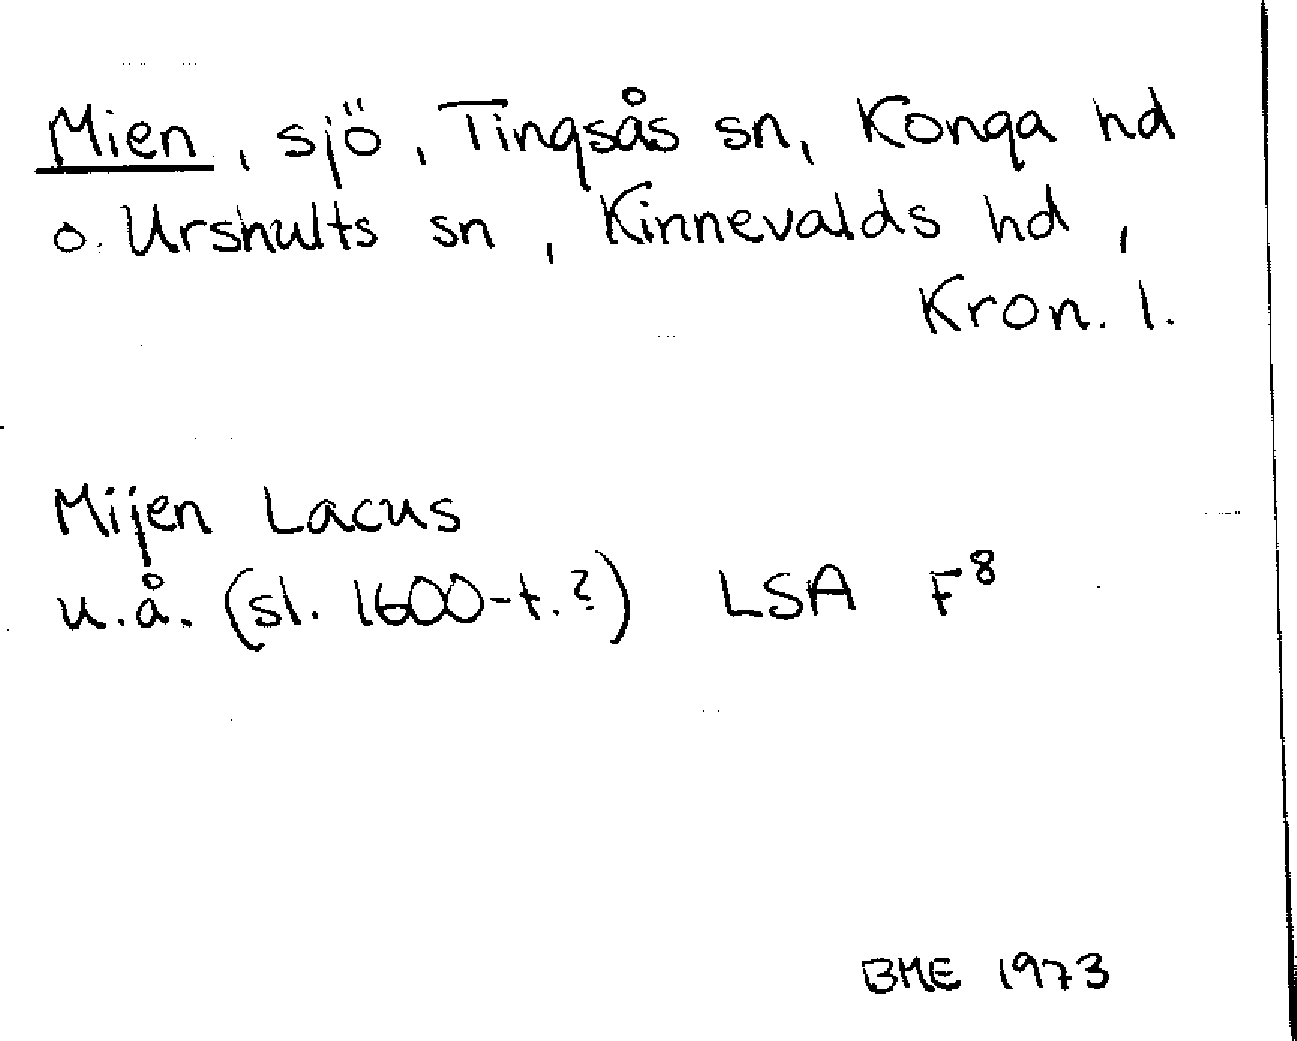 Mien, sjö, Tingsås sn, Konga hd
o. Urshults sn, Kinnevalds hd,
Kron. l.
Mijen Lacus
u.å. (sl. 1600-t.?) LSA F⁸
BME 1973